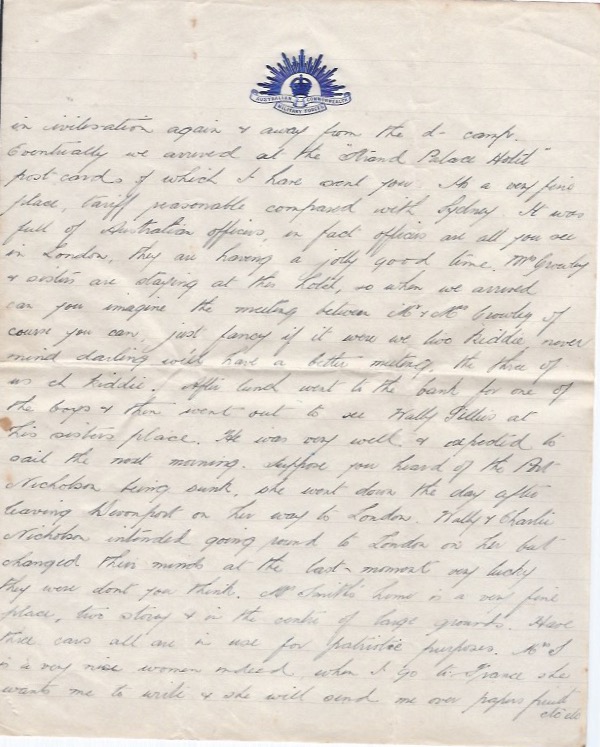 AUSTRALIAN COMMONWEALTH
MILITARY FORCES
in civilisation again & away from the d- camp.
Eventually we arrived at the "Strand Palace Hotel"
post cards of which I have sent you. Its a very fine
place, tariff reasonable compared with Sydney. It was
full of Australian officers, in fact officers are all you see
in London, they are having a jolly good time. Mrs Crowley
& sisters are staying at this hotel, so when we arrived
can you imagine the meeting between Mr & Mrs Crowley of
course you can, just fancy if it were we two kiddie never
mind darling we'll have a better meeting, the three of
us eh kiddie. After lunch went to the bank for one of
the boys & then went out to see Wally at
his sisters place. He was very well & expected to
sail the next morning. Suppose you heard of the
Nicholson being sunk, she went down the day after
leaving Devonport on her way to London. Wally & Charlie
Nicholson intended going round to London on her but
changed their minds at the last moment very lucky
they were dont you think. Mr Smith's home is a very fine
place, two storey & in the centre of large grounds. Have
three cars all are in use for patriotic purposes. Mrs S
is a very nice women indeed, when I go to France she
wants me to write & she will send me over papers fruit
etc etc